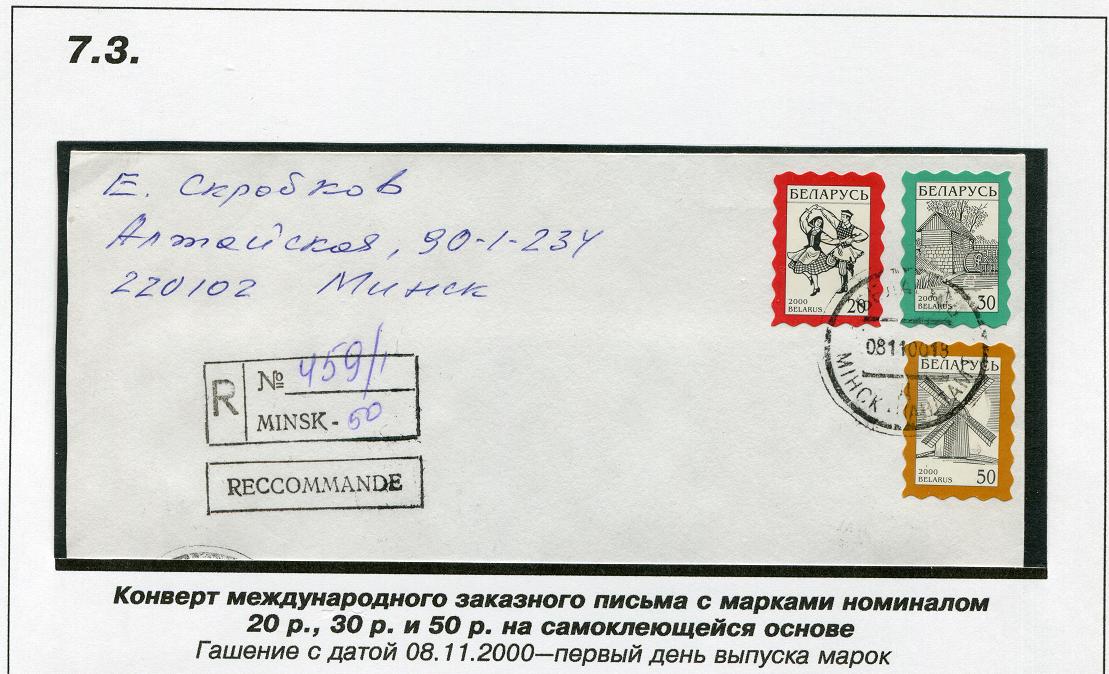 7.3.
Е. Скробков
Алтайская, 90-1-234
220102 Минск
БЕЛАРУСЬ
2000
BELARUS
20
БЕЛАРУСЬ
2000
BELARUS
30
R № 459/1
MINSK - 50
RECCOMMANDE
08110018
МІНСК
БЕЛАРУСЬ
2000
BELARUS
50
Конверт международного заказного письма с марками номиналом
20 р., 30 р. и 50 р. на самоклеющейся основе
Гашение с датой 08.11.2000—первый день выпуска марок